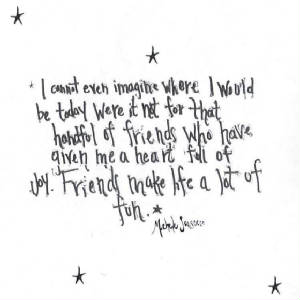 * I cannot even imagine where I would
be today were it not for that
handful of friends who have
given me a heart full of
joy. Friends make life a lot of
fun. *